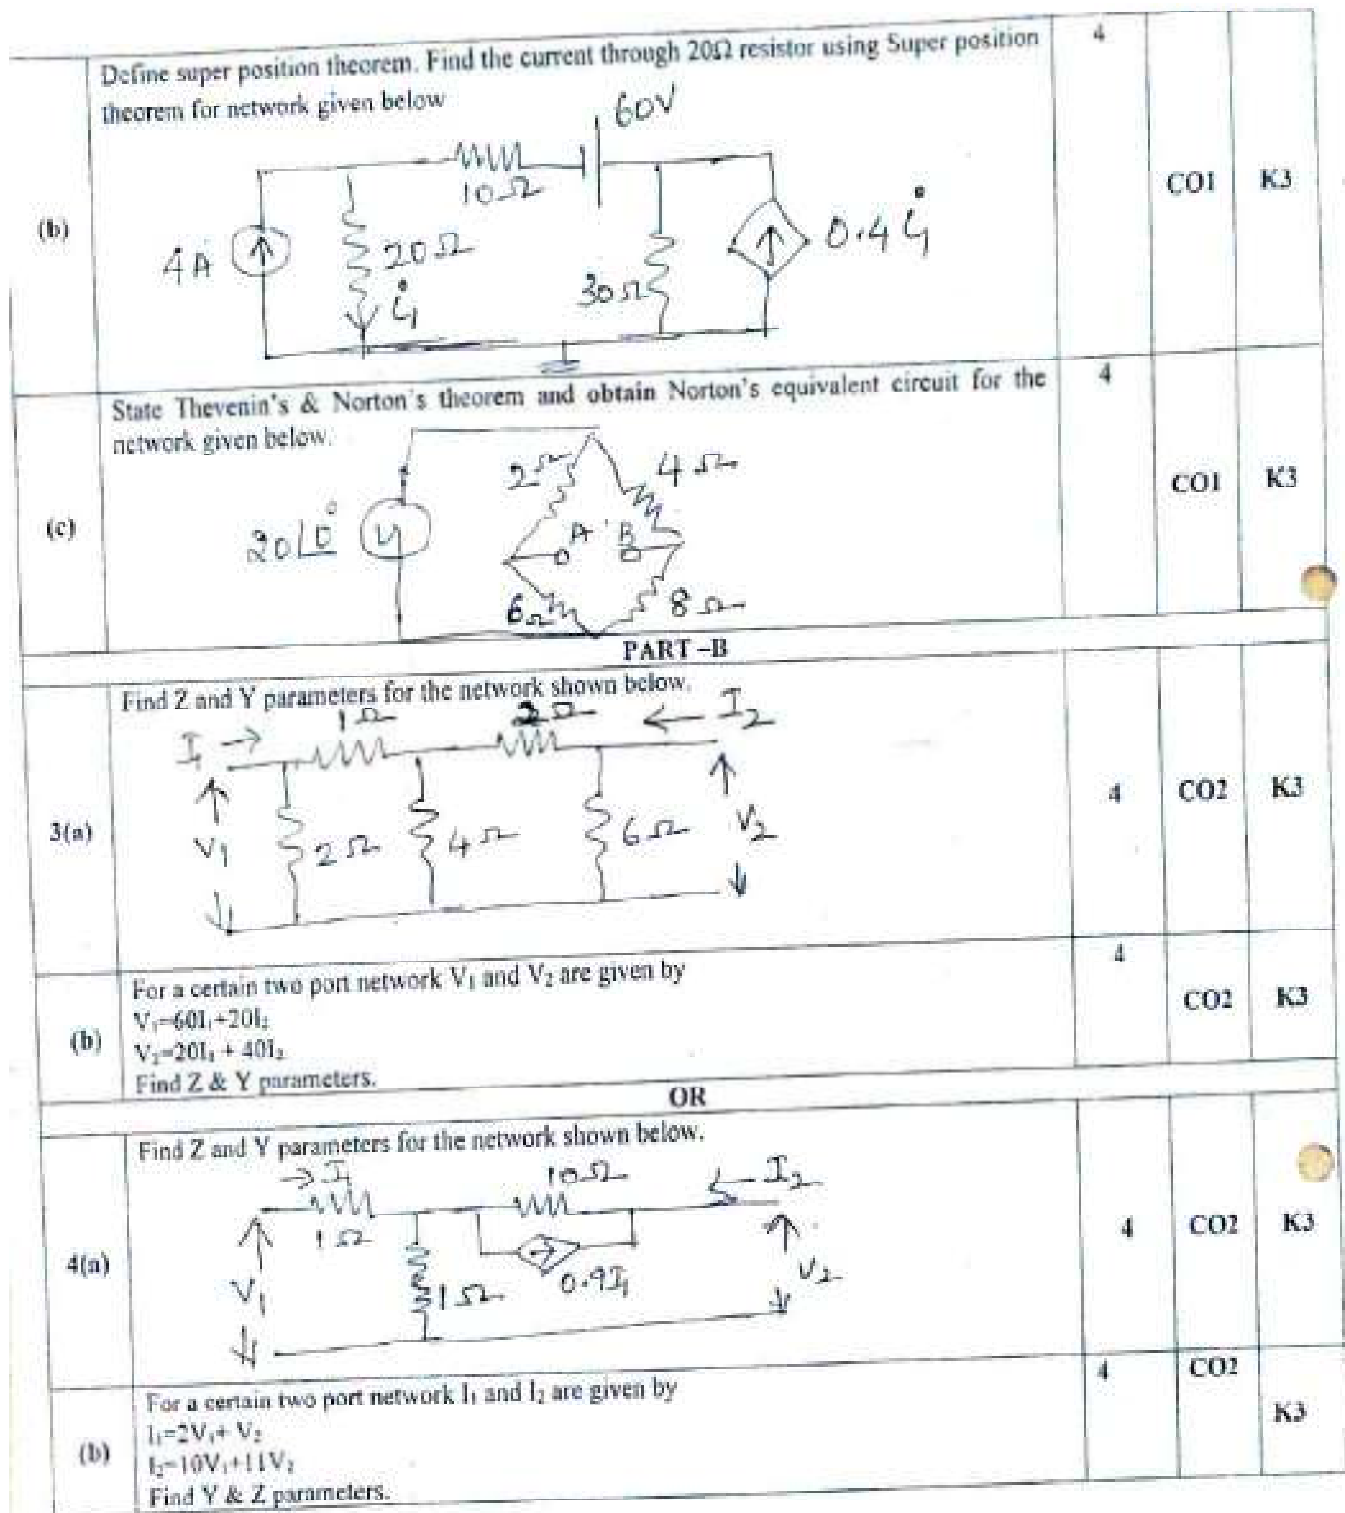 Define super position theorem. Find the current through 20Ω resistor using Super position 4
theorem for network given below
60V
10Ω
CO1 K3
(b)
4A 20Ω i₁ 30Ω 0.4 i₁
State Thevenin's & Norton's theorem and obtain Norton's equivalent circuit for the 4
network given below.
2Ω 4Ω
CO1 K3
(c)
20∠0° A B
6Ω 8Ω
PART –B
Find Z and Y parameters for the network shown below.
I₁ → 1Ω 2Ω ← I₂
3(a) V₁ 2Ω 4Ω 6Ω V₂ 4 CO2 K3
For a certain two port network V₁ and V₂ are given by 4
V₁=60I₁+20I₂ CO2 K3
(b) V₂=20I₁ + 40I₂
Find Z & Y parameters.
OR
Find Z and Y parameters for the network shown below.
→ I₁ 10Ω ← I₂
1Ω
4(a) V₁ 1Ω 0.9I₁ V₂ 4 CO2 K3
For a certain two port network I₁ and I₂ are given by 4 CO2
I₁=2V₁+ V₂ K3
(b) I₂=10V₁+11V₂
Find Y & Z parameters.